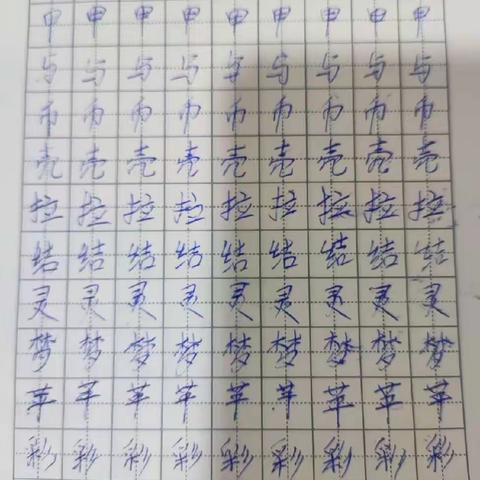 甲甲甲甲甲甲甲甲甲
与与与与与与与与与
币币币币币币币币币
壳壳壳壳壳壳壳壳壳
拉拉拉拉拉拉拉拉拉
结结结结结结结结结
灵灵灵灵灵灵灵灵灵
梦梦梦梦梦梦梦梦梦
苹苹苹苹苹苹苹苹苹
彩彩彩彩彩彩彩彩彩